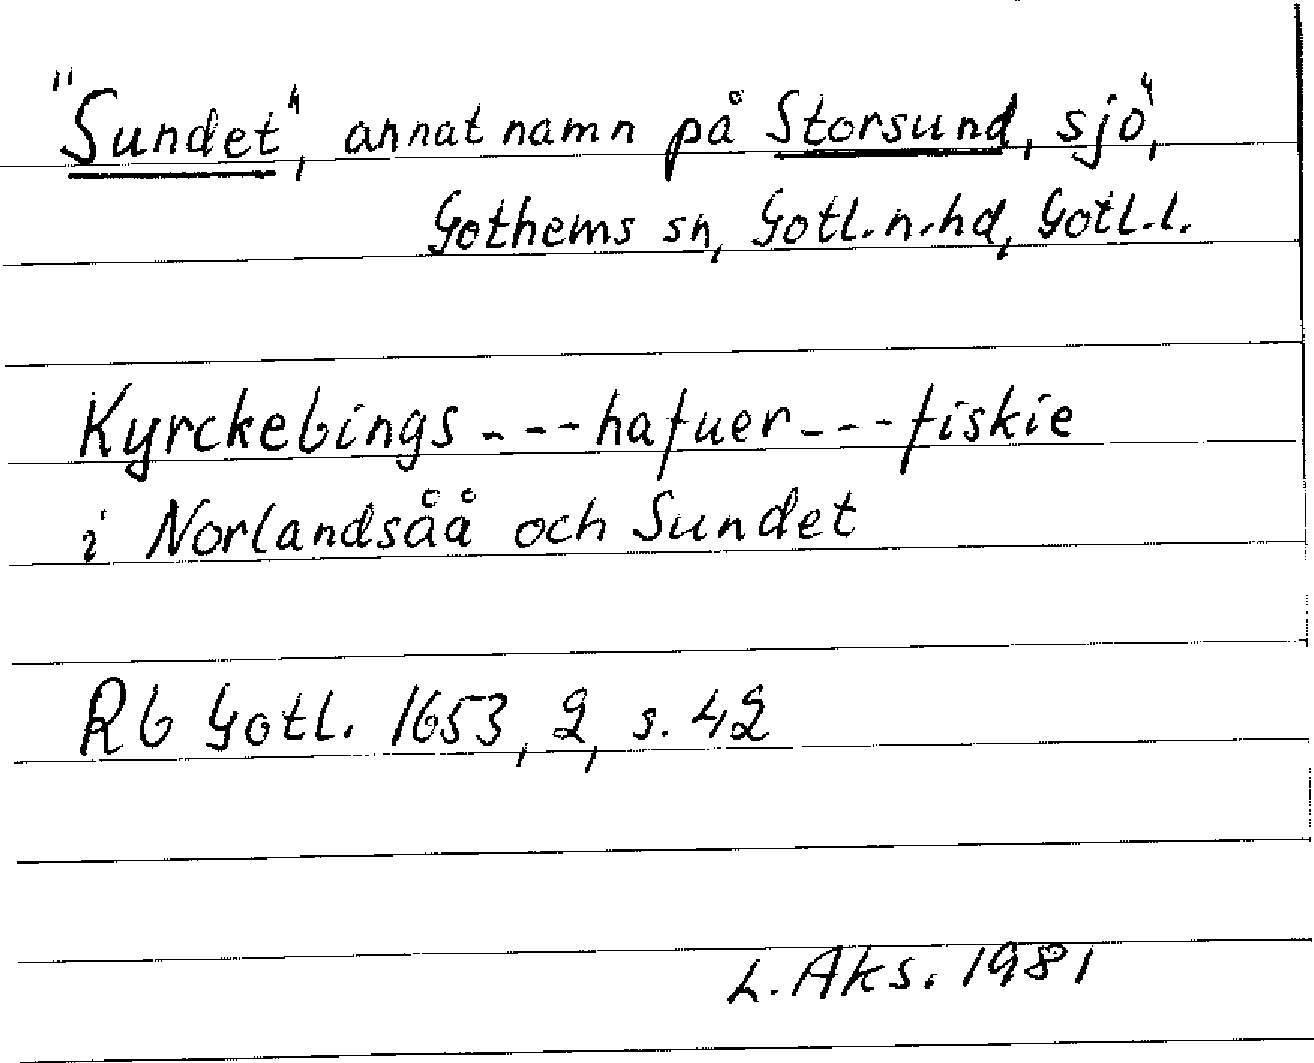 "Sundet", annat namn på Storsund, sjö,
Gothems sn, Gotl. n. hd, Gotl. l.
Kyrckebings - - - hafuer - - - fiskie
i Norlandsåå och Sundet
Rb Gotl. 1653, 2, s. 42
L. Aks. 1981